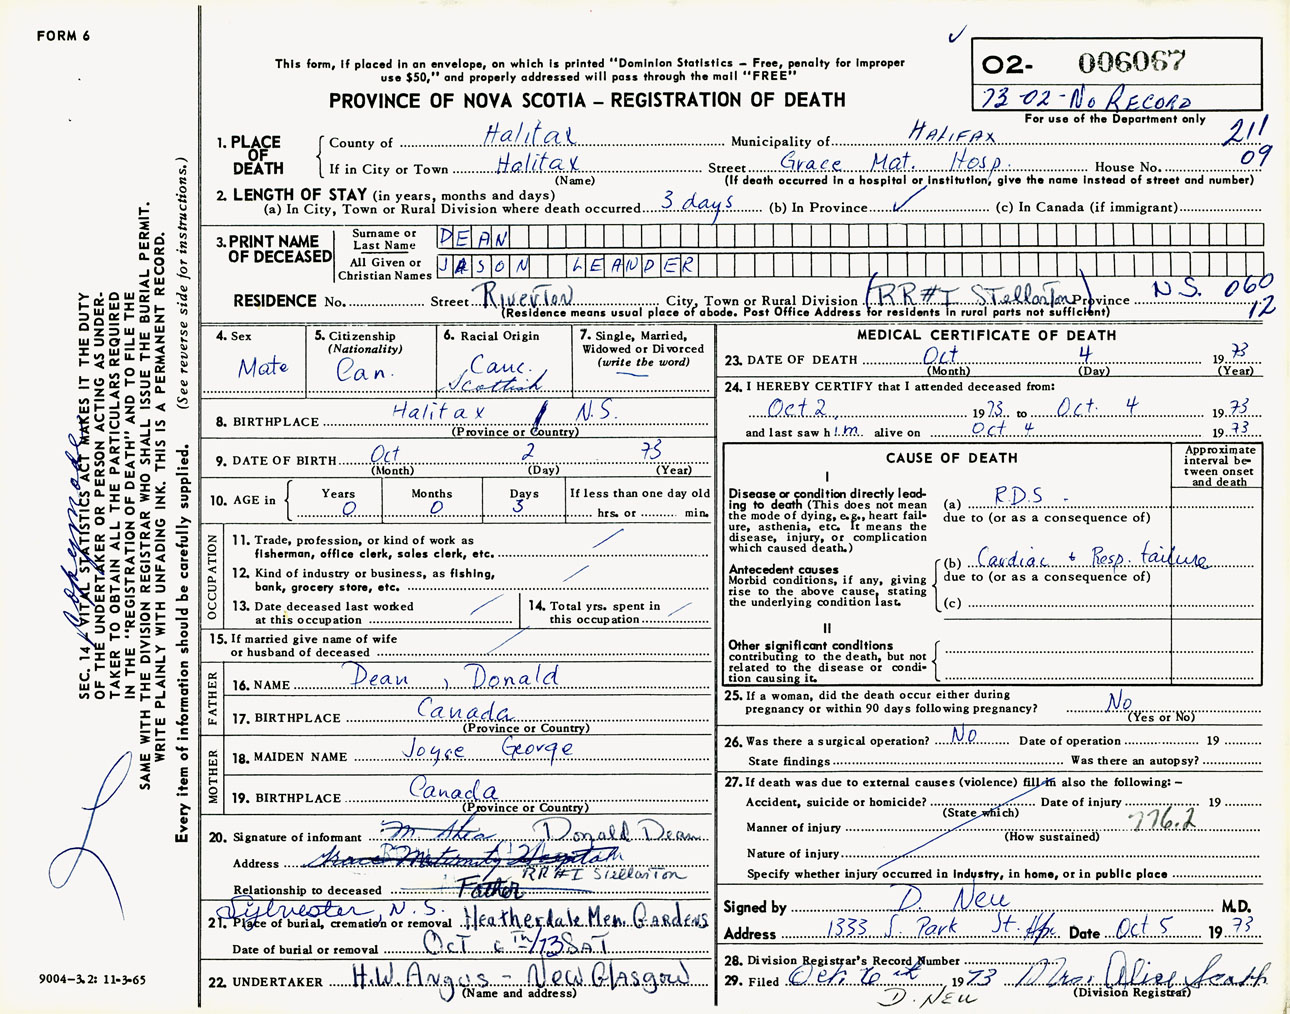 FORM 6
This form, if placed in an envelope, on which is printed "Dominion Statistics – Free, penalty for improper
use $50," and properly addressed will pass through the mail "FREE"
PROVINCE OF NOVA SCOTIA – REGISTRATION OF DEATH
O2- 006067
73-02-No RECORD
For use of the Department only
1. PLACE OF DEATH
County of Halifax Municipality of HALIFAX 211
If in City or Town Halifax Street Grace Mat. Hosp. House No. 09
(Name) (If death occurred in a hospital or institution, give the name instead of street and number)
2. LENGTH OF STAY (in years, months and days)
(a) In City, Town or Rural Division where death occurred 3 days (b) In Province ✓ (c) In Canada (if immigrant)
3. PRINT NAME OF DECEASED
Surname or Last Name DEAN
All Given or Christian Names JASON LEANDER
RESIDENCE No. Street Riverton City, Town or Rural Division (RR#1 Stellarton) Province N.S. 060
(Residence means usual place of abode. Post Office Address for residents in rural parts not sufficient) 12
4. Sex
Male
5. Citizenship
(Nationality)
Can.
6. Racial Origin
Cauc.
Scottish
7. Single, Married,
Widowed or Divorced
(write the word)
8. BIRTHPLACE Halifax N.S.
(Province or Country)
9. DATE OF BIRTH Oct 2 73
(Month) (Day) (Year)
10. AGE in
Years Months Days If less than one day old
0 0 3 hrs. or min.
OCCUPATION
11. Trade, profession, or kind of work as
fisherman, office clerk, sales clerk, etc.
12. Kind of industry or business, as fishing,
bank, grocery store, etc.
13. Date deceased last worked
at this occupation
14. Total yrs. spent in
this occupation
15. If married give name of wife
or husband of deceased
FATHER
16. NAME Dean, Donald
17. BIRTHPLACE Canada
(Province or Country)
MOTHER
18. MAIDEN NAME Joyce George
19. BIRTHPLACE Canada
(Province or Country)
20. Signature of informant Donald Dean
Address Grace Maternity Hospital
RR#1 Stellarton
Relationship to deceased Father
Sylvester, N.S.
21. Place of burial, cremation or removal Heatherdale Mem. Gardens
Date of burial or removal Oct 6th/73 SAT
22. UNDERTAKER H.W. Angus – New Glasgow
(Name and address)
MEDICAL CERTIFICATE OF DEATH
23. DATE OF DEATH Oct 4 1973
(Month) (Day) (Year)
24. I HEREBY CERTIFY that I attended deceased from:
Oct 2, 1973 to Oct. 4 1973
and last saw him alive on Oct 4 1973
CAUSE OF DEATH
Approximate
interval be-
tween onset
and death
I
Disease or condition directly lead-
ing to death (This does not mean
the mode of dying, e.g., heart fail-
ure, asthenia, etc. It means the
disease, injury, or complication
which caused death.)
(a) R.D.S.
due to (or as a consequence of)
Antecedent causes
Morbid conditions, if any, giving
rise to the above cause, stating
the underlying condition last.
(b) Cardiac + Resp. failure
due to (or as a consequence of)
(c)
II
Other significant conditions
contributing to the death, but not
related to the disease or condi-
tion causing it.
25. If a woman, did the death occur either during
pregnancy or within 90 days following pregnancy? No
(Yes or No)
26. Was there a surgical operation? No Date of operation 19
State findings Was there an autopsy?
27. If death was due to external causes (violence) fill in also the following: –
Accident, suicide or homicide? Date of injury 19
(State which)
Manner of injury 776.2
(How sustained)
Nature of injury
Specify whether injury occurred in industry, in home, or in public place
Signed by D. Neu M.D.
Address 1333 S. Park St. Hfx Date Oct 5 1973
28. Division Registrar's Record Number
29. Filed Oct. 6th 1973 Mrs
(Division Registrar)
D. NEU
SEC. 14 – VITAL STATISTICS ACT MAKES IT THE DUTY
OF THE UNDERTAKER OR PERSON ACTING AS UNDER-
TAKER TO OBTAIN ALL THE PARTICULARS REQUIRED
IN THE "REGISTRATION OF DEATH" AND TO FILE THE
SAME WITH THE DIVISION REGISTRAR WHO SHALL ISSUE THE BURIAL PERMIT.
WRITE PLAINLY WITH UNFADING INK. THIS IS A PERMANENT RECORD.
Every item of information should be carefully supplied. (See reverse side for instructions.)
9004–3.2: 11-3-65